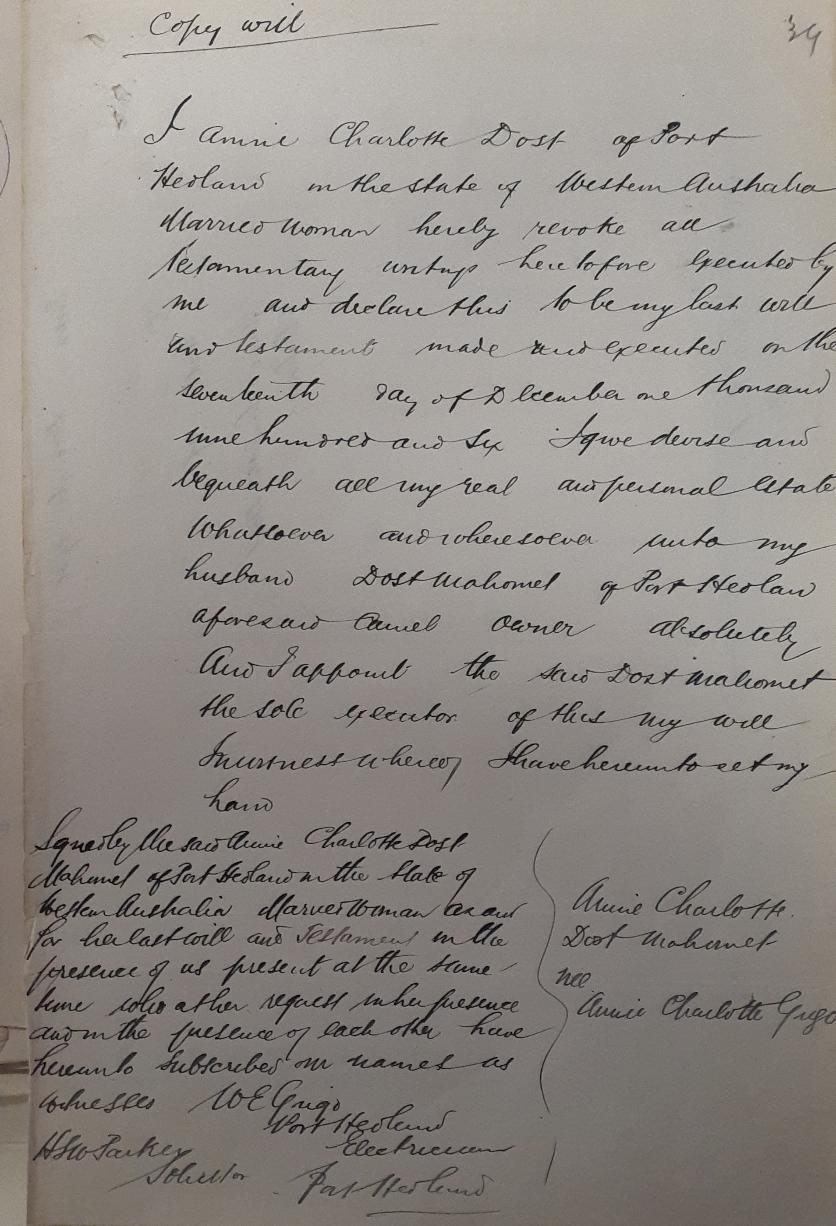 Copy will
34
I Annie Charlotte Dost of Port
Hedland in the state of Western Australia
Married Woman hereby revoke all
testamentary writings heretofore executed by
me and declare this to be my last will
and testament made and executed on the
seventeenth day of December one thousand
nine hundred and six I give devise and
bequeath all my real and personal Estate
Whatsoever and wheresoever unto my
husband Dost Mahomet of Port Hedland
aforesaid Camel owner absolutely
And I appoint the said Dost Mahomet
the sole executor of this my will
In witness whereof I have hereunto set my
hand
Signed by the said Annie Charlotte Dost
Mahomet of Port Hedland in the State of
Western Australia Married Woman as and
for her last will and Testament in the
presence of us present at the same
time who at her request in her presence
and in the presence of each other have
hereunto subscribed our names as
witnesses W E Grigo
Port Hedland
Electrician
H S W Parker
Solicitor Port Hedland
Annie Charlotte
Dost Mahomet
nee
Annie Charlotte Grigo